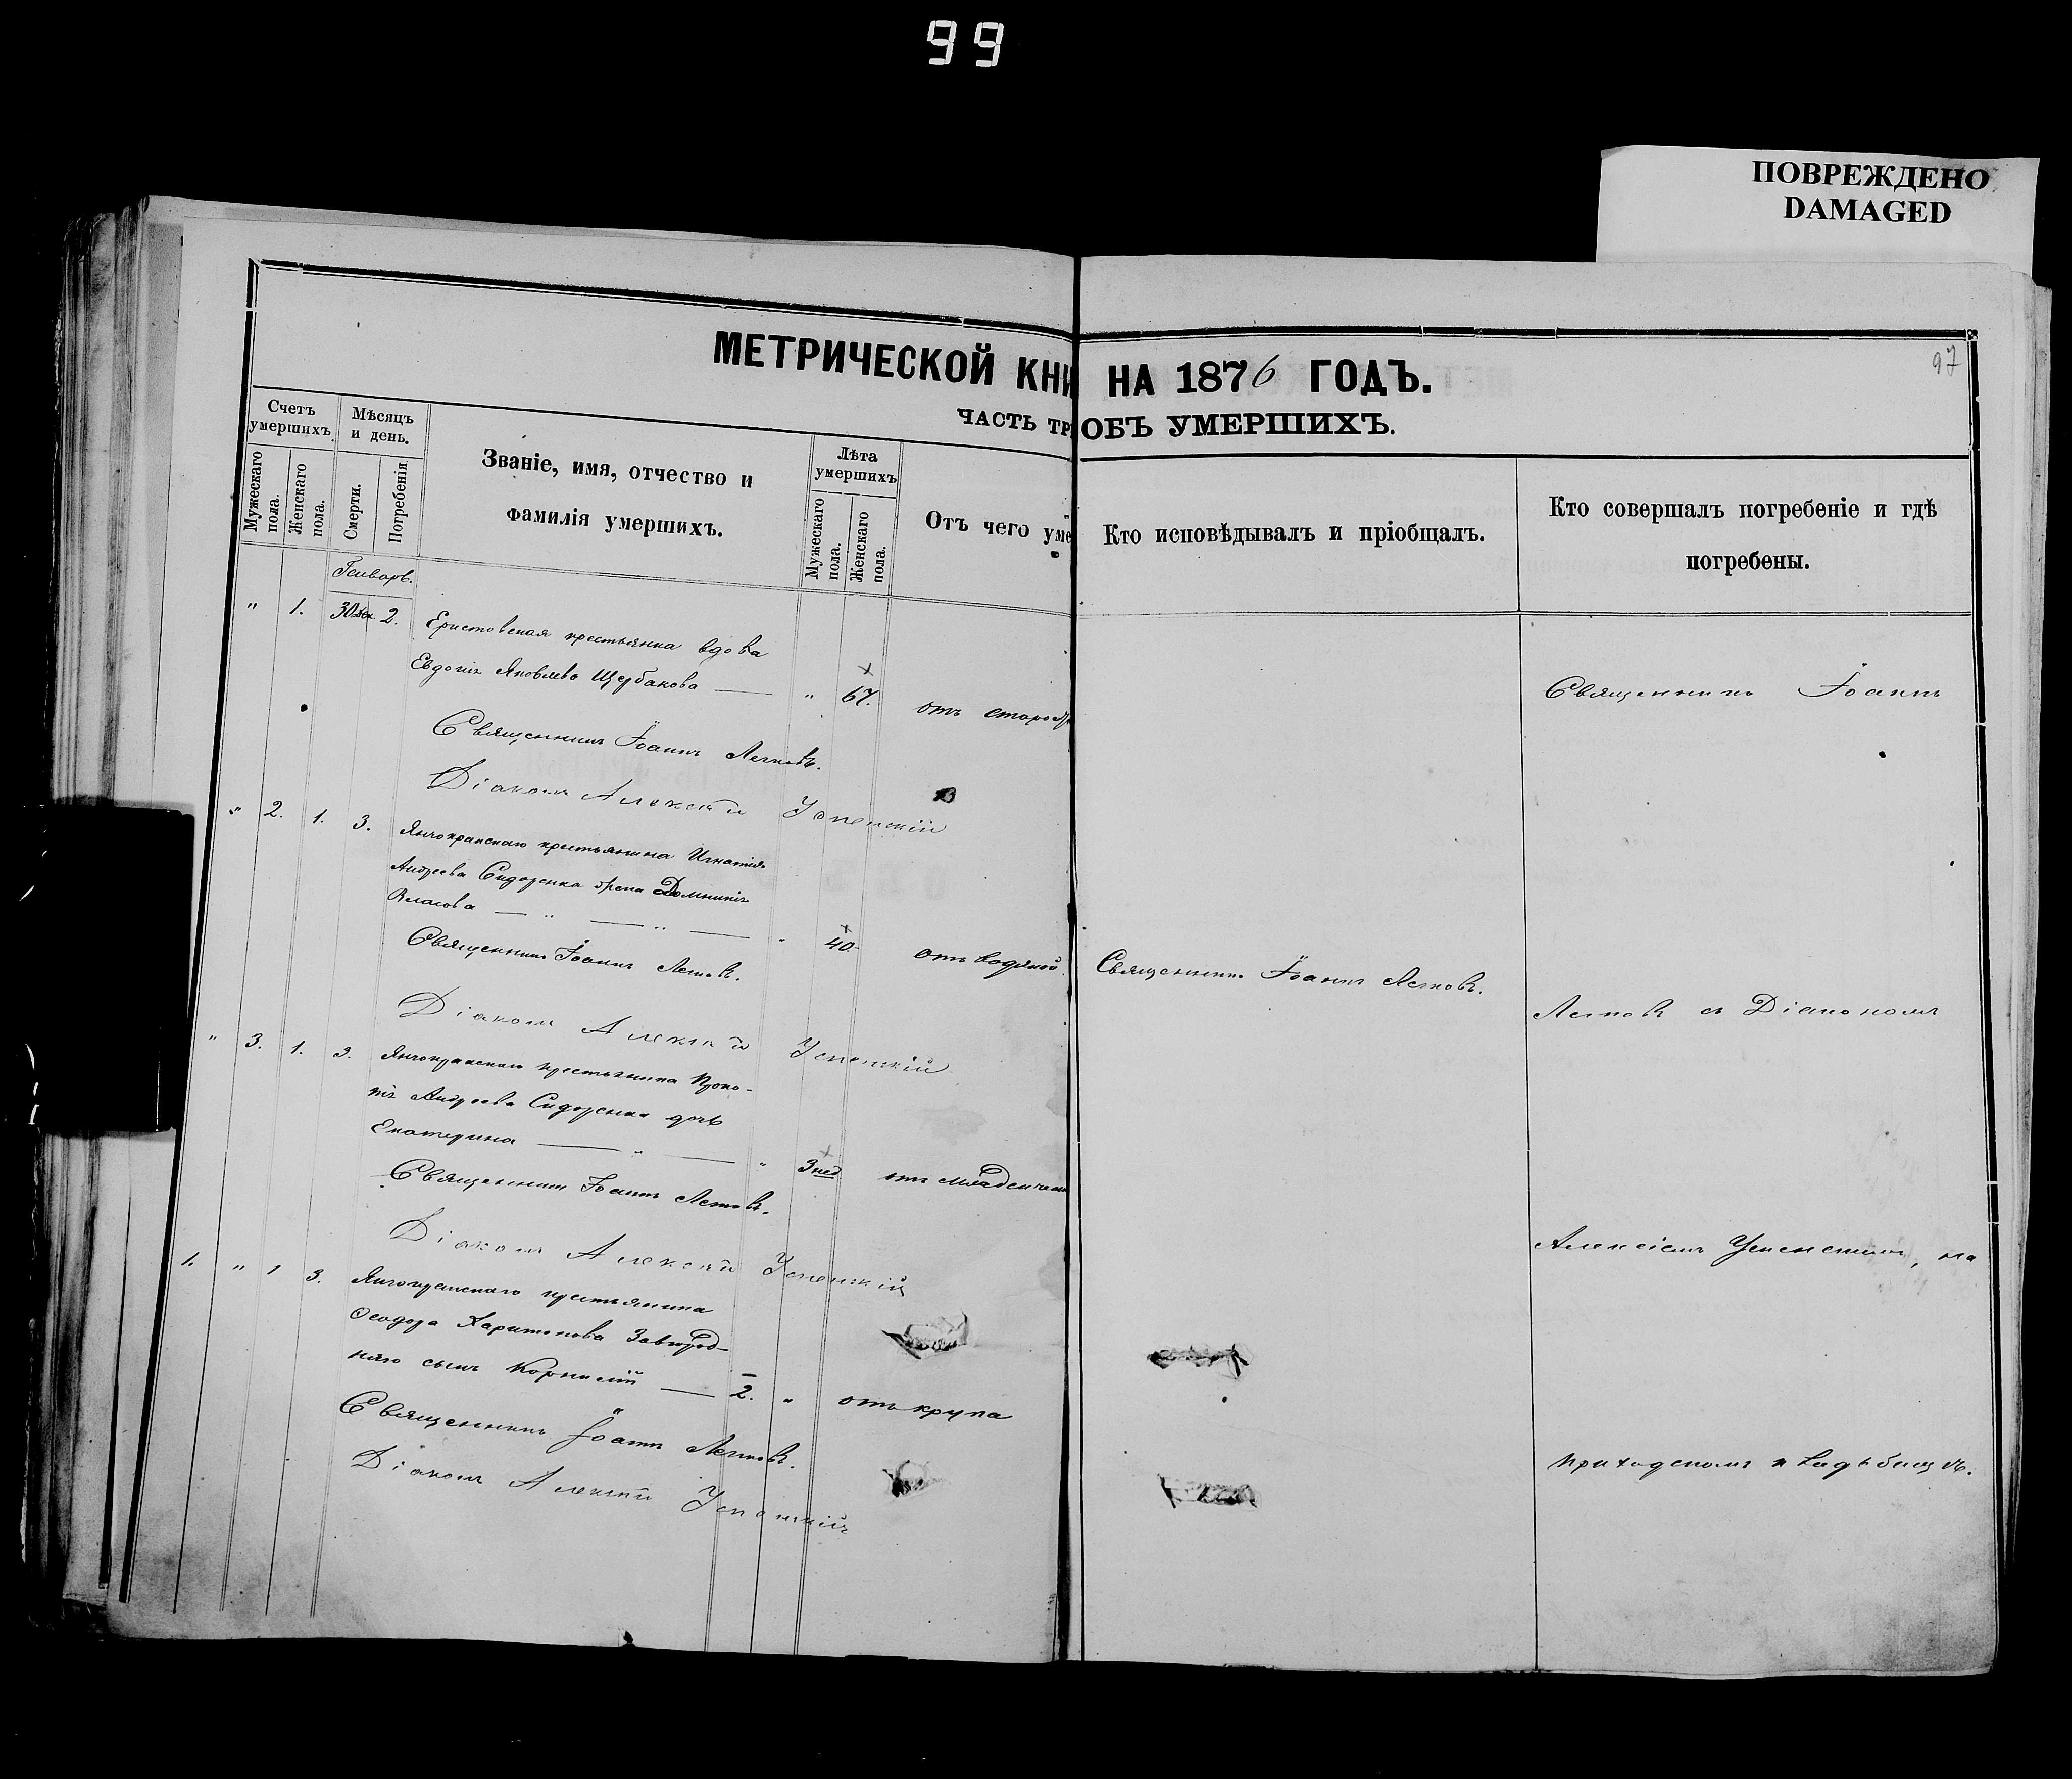 99
ПОВРЕЖДЕНО
DAMAGED
97
МЕТРИЧЕСКОЙ КНИ НА 1876 ГОДЪ.
ЧАСТЬ ТР ОБЪ УМЕРШИХЪ.
Счетъ умершихъ.
Мужескаго пола.
Женскаго пола.
Мѣсяцъ и день.
Смерти.
Погребенія
Званіе, имя, отчество и
фамилія умершихъ.
Лѣта умершихъ
Мужескаго пола.
Женскаго пола.
Отъ чего уме
Кто исповѣдывалъ и пріобщалъ.
Кто совершалъ погребеніе и гдѣ
погребены.
Генварь.
" 1. 30 дек. 2. Еристовская крестьянка вдова
Евдокія Яковлева Щербакова — " 67. отъ старо
Священникъ Іоаннъ
Священникъ Іоаннъ
Діаконъ Алексѣй Успенскій
" 2. 1. 3. крестьянина Игнатія
Андреева Сидоренка Домникія
Власова — " — " — " 40. отъ водяной
Священникъ Іоаннъ
Священникъ Іоаннъ
съ Діакономъ
Діаконъ Алексѣй Успенскій
" 3. 1. 3. крестьянина Проко-
пія Андреева Сидоренка дочь
Екатерина — " — " 3 нед отъ младенческ
Священникъ Іоаннъ
Діаконъ Алексѣй Успенскій
Алексіемъ Успенскимъ, на
1. " 1 3. крестьянина
Ѳеодора Харитонова Завгород-
няго сынъ Корнилій — 2. " отъ крупа
Священникъ Іоаннъ
Діаконъ Алексѣй Успенскій
приходскомъ кладьбищѣ.